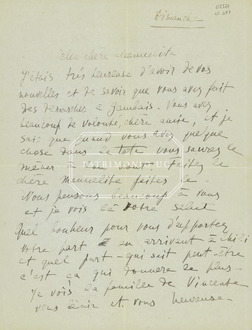 Dimanche —
Ma chère Manuelita
J'étais très heureuse d'avoir de vos
nouvelles et de savoir que vous avez fait
des démarches à Vous avez
beaucoup de volonté, chère amie, et je
sais que quand vous avez quelque
chose dans la tête vous saurez le
mener Faites le
chère Manuelita faites le.
Nous pensons beaucoup à vous
et je vois là votre
Quel bonheur pour vous d'apporter
votre part en arrivant à
et quel part - qui sait peut-être
c'est ça qui donnera le plus -
Je vois la famille de Vincente
vous et vous heureuse -